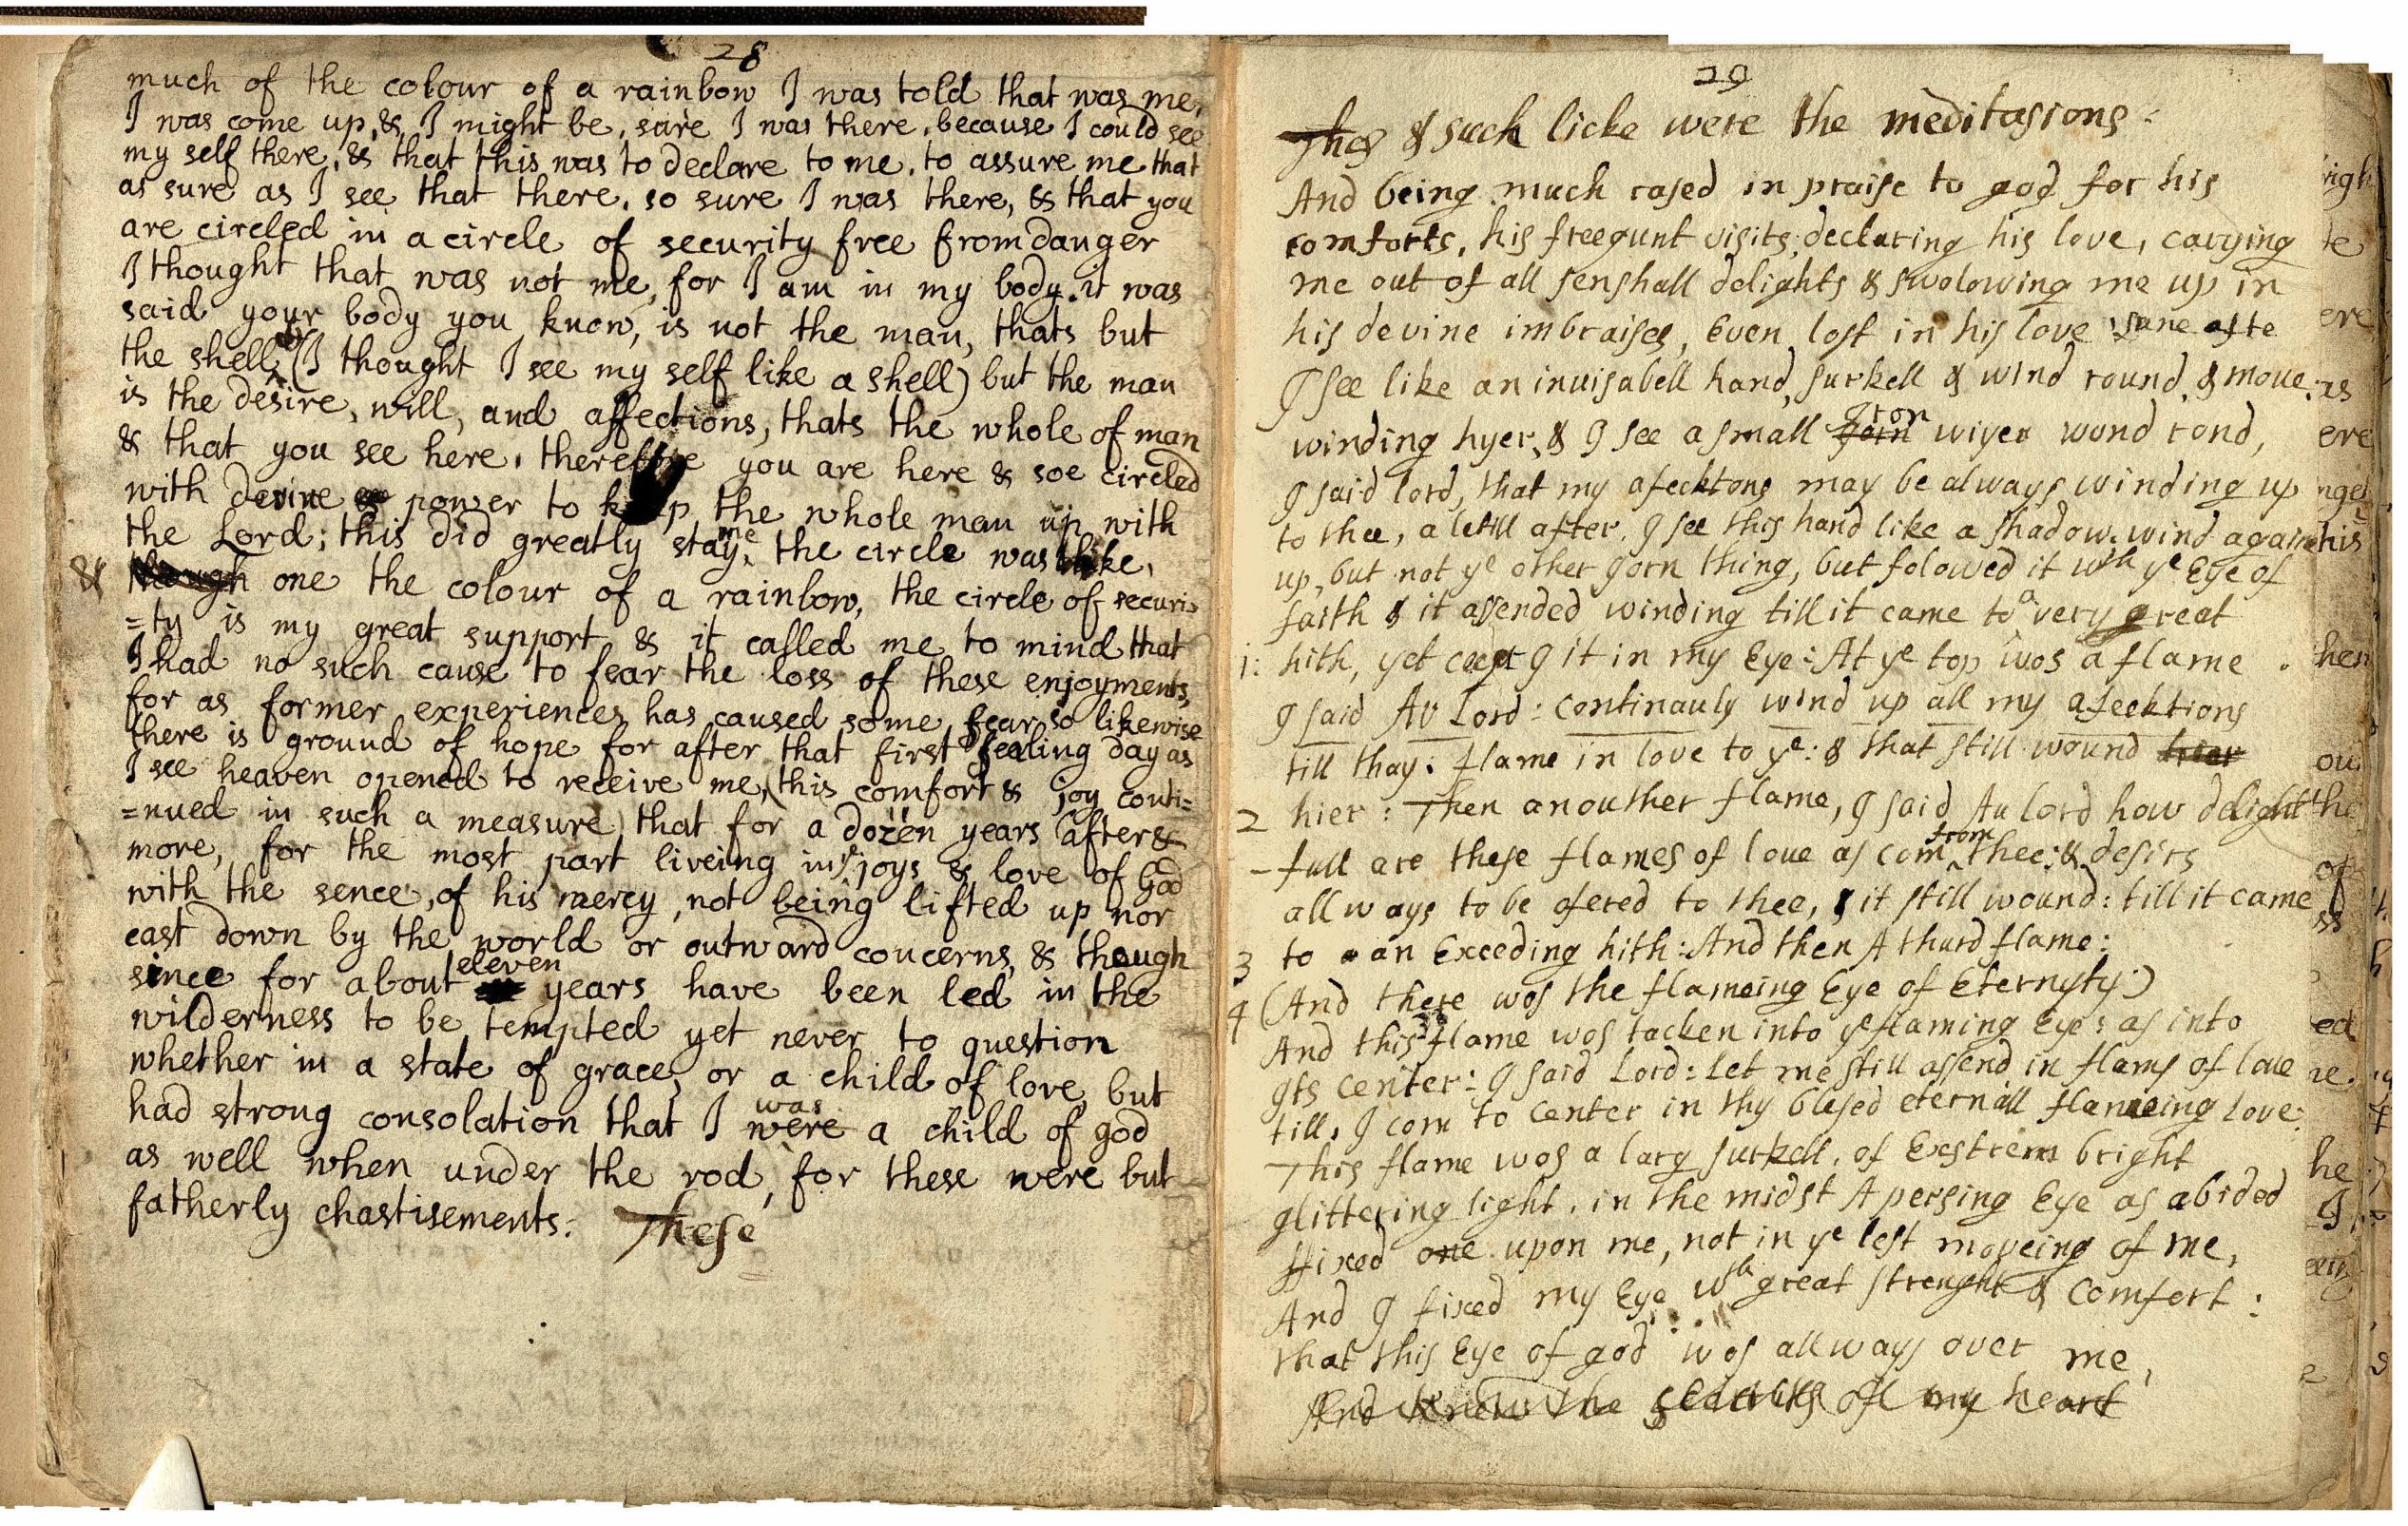 28
much of the colour of a rainbow I was told that was me,
I was come up, & I might be, sure I was there, because I could see
my self there, & that this was to declare to me, to assure me that
as sure as I see that there, so sure I was there, & that you
are circled in a circle of security free from danger
I thought that was not me, for I am in my body. it was
said your body you know, is not the man, thats but
the shell, (I thought I see my self like a shell) but the man
is the desire, will, and affections, thats the whole of man
& that you see here, therefore you are here & soe circled
with devine power to keep the whole man up with
the Lord; this did greatly stay me the circle was like,
& one the colour of a rainbow, the circle of securi=
=ty is my great support & it called me to mind that
I had no such cause to fear the loss of these enjoyments,
for as former experiences has caused some fear so likewise
there is ground of hope for after that first sealing day as
I see heaven opened to receive me, this comfort & joy conti=
=nued in such a measure that for a dozen years after &
more, for the most part liveing in ye joys & love of God
with the sence, of his mercy, not being lifted up nor
cast down by the world or outward concerns, & though
since for about eleven years have been led in the
wilderness to be tempted yet never to question
whether in a state of grace, or a child of love but
had strong consolation that I was were a child of god
as well when under the rod, for these were but
fatherly chastisements: These
29
Thes & such licke were the meditasions:
And being much rased in praise to god for his
comforts, his freequnt visits, declaring his love, carying
me out of all senshall delights & swolowing me up in
his devine imbraises, Even lost in his love
I see like an invisabell hand, surkell & wind round, & move
winding hyer, & I see a small Iron wiyer wond rond,
I said lord, that my afecktons may be always winding up
to thee, a letill after, I see this hand like a shadow, wind again
up, but not ye other Jorn thing, but folowed it with ye Eye of
faith & it assended winding till it came to a very great
1: hith, yet ceept I it in my Eye: At ye top wos a flame
I said Av Lord: continauly wind up all my afecktions
till thay: flame in love to ye: & that still wound hier
2 hier: Then anouther flame, I said Au lord how delight
-full are these flames of love as com from thee: & desirs
all ways to be ofered to thee, & it still wound: till it came
3 to an Exceding hith: And then A thurd flame:
4 (And there wos the flameing Eye of Eternyty:)
And this flame wos tacken into ye flaming Eye: as into
Its center: I said Lord: Let me still assend in flams of love
till, I com to center in thy blesed eternall flameing love:
This flame wos a larg surkell, of Exstrem bright
glittering light, in the midst A persing Eye as abided
ffixed one upon me, not in ye lest moveing of me,
And I fixed my Eye wth great strenght & comfort:
that this Eye of god wos allways over me,
And knew the of my heart